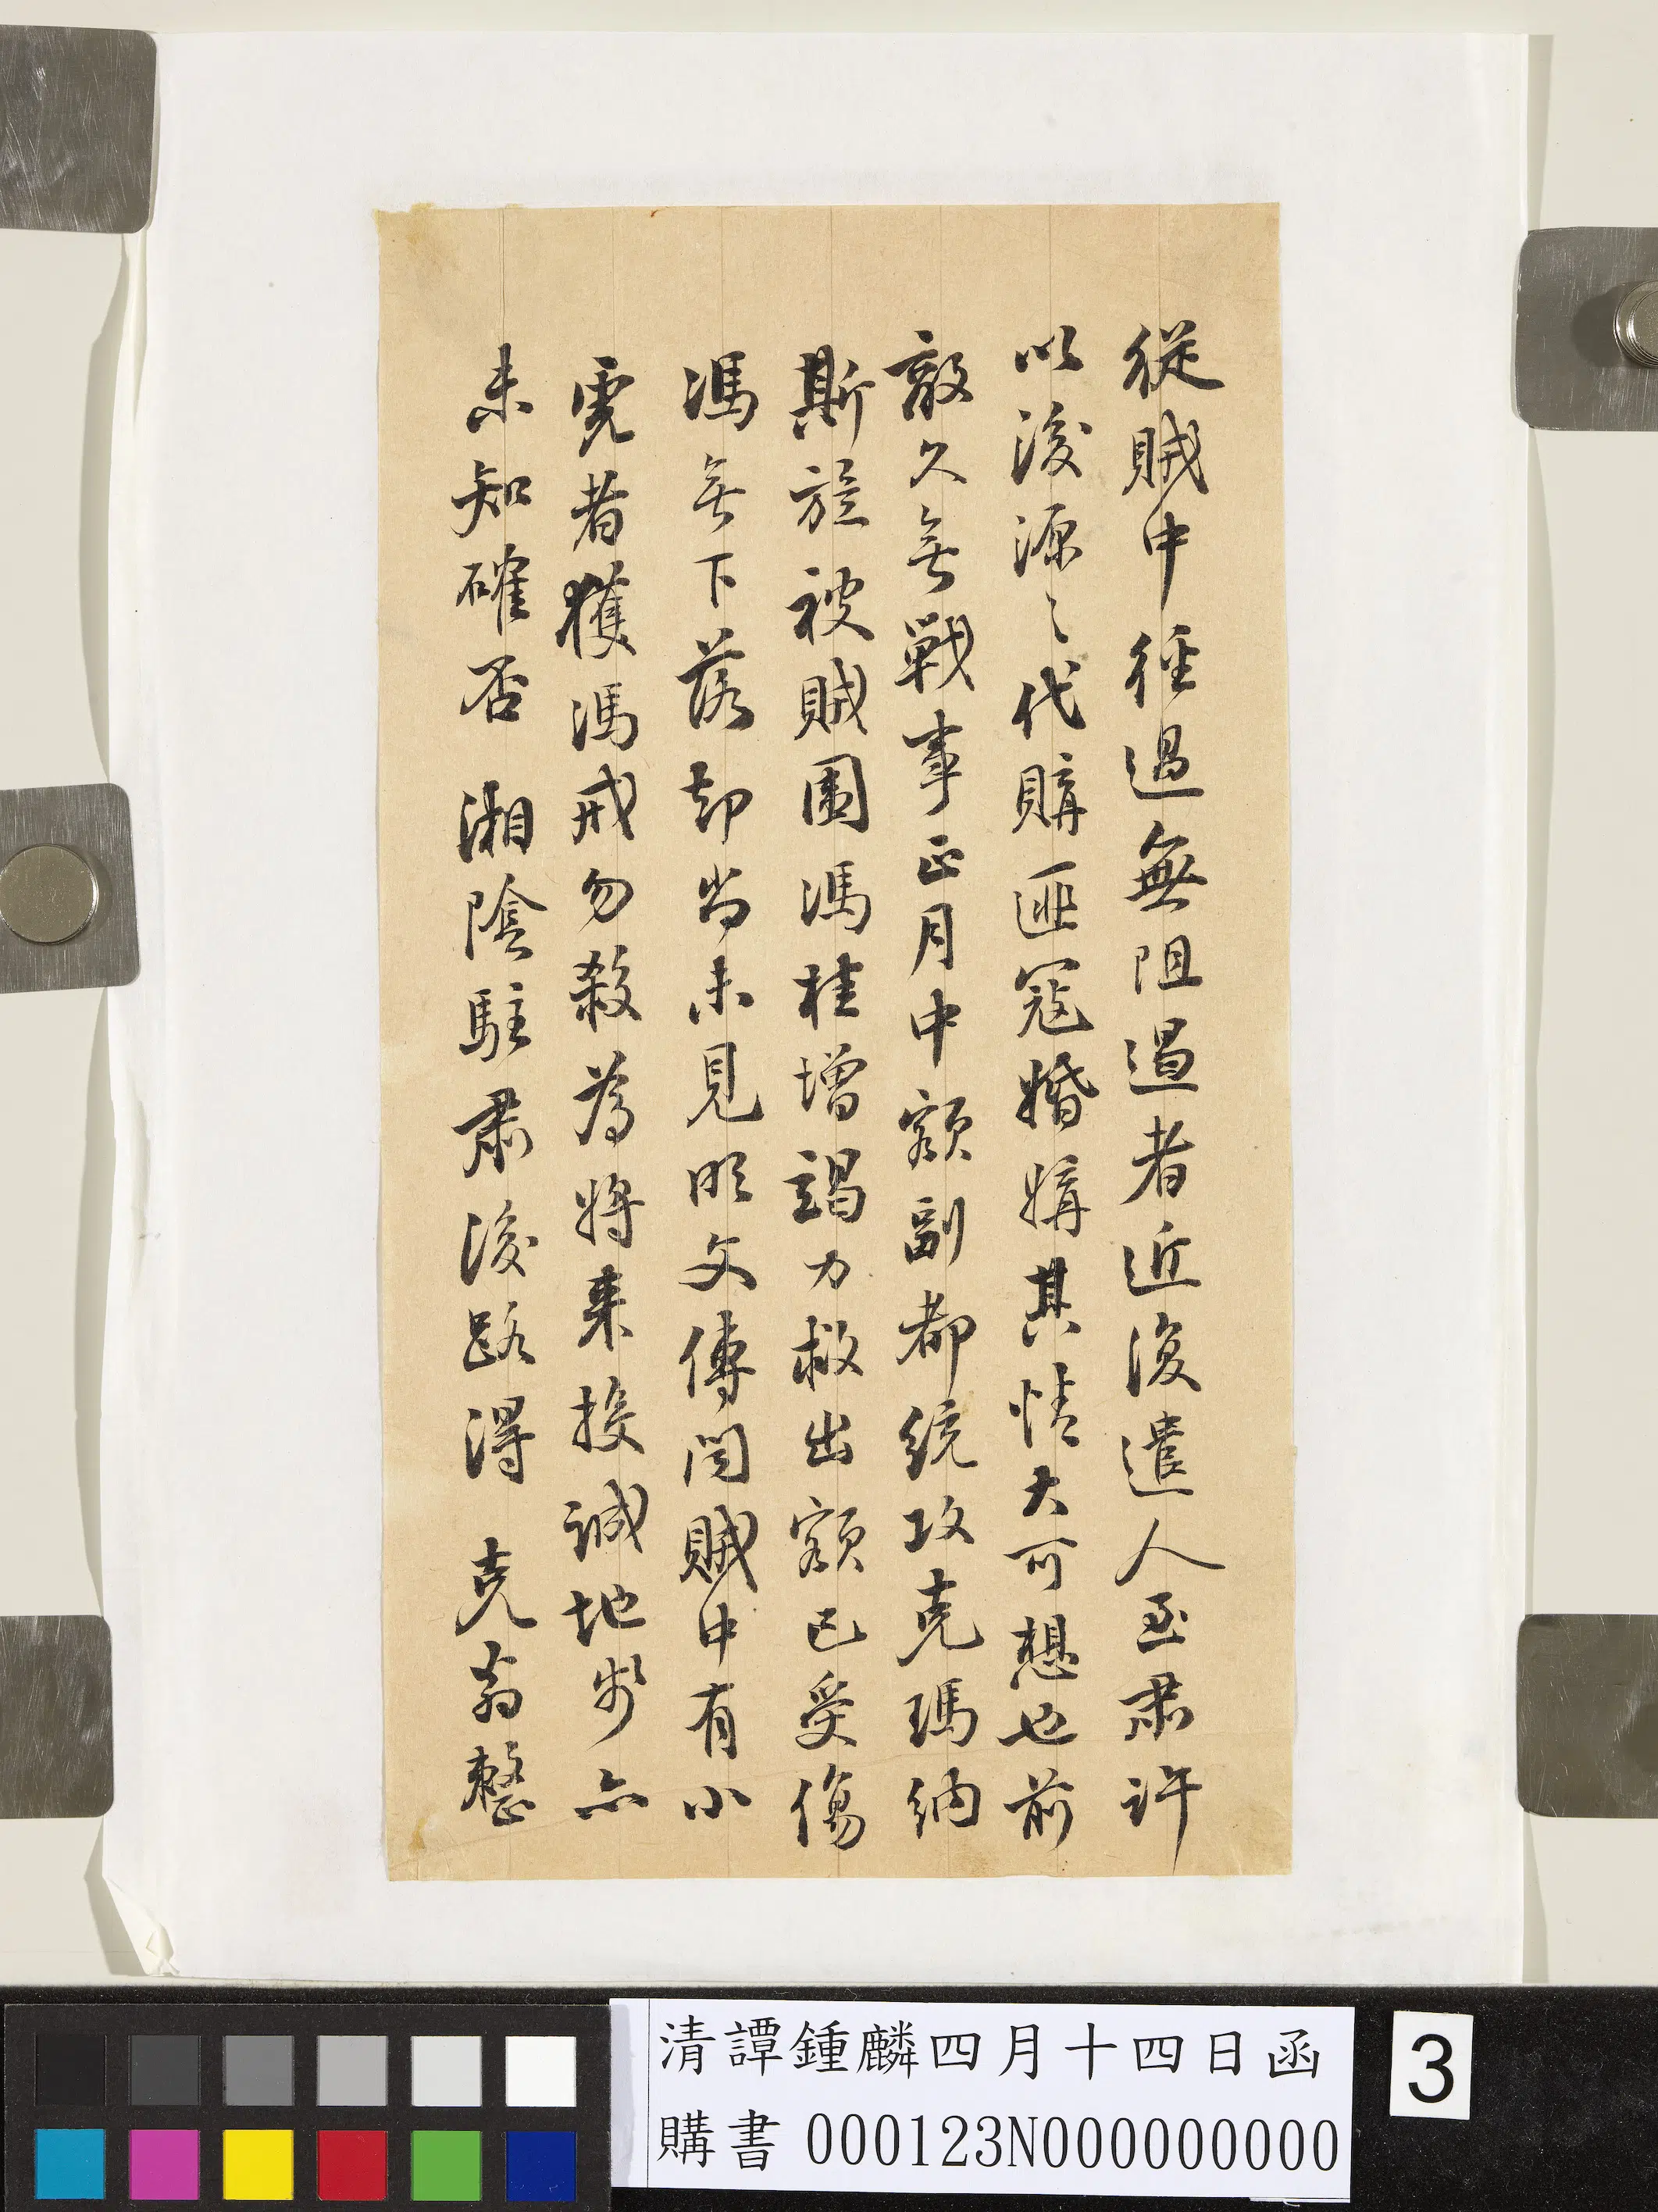 從賊中徑過無阻遏者近復遣人至肅許
以後源〻代購匪寇婚媾其情大可想也前
敵久無戰事正月中額副都統攻克瑪納
斯旋被賊圍馮桂增竭力救出額已受傷
馮無下落却尚未見明文傳聞賊中有小
霓者獲馮戒勿殺為將來投誠地步亦
未知確否 湘陰駐肅後路得 克翁整
清譚鍾麟四月十四日函
購書 000123N000000000
3